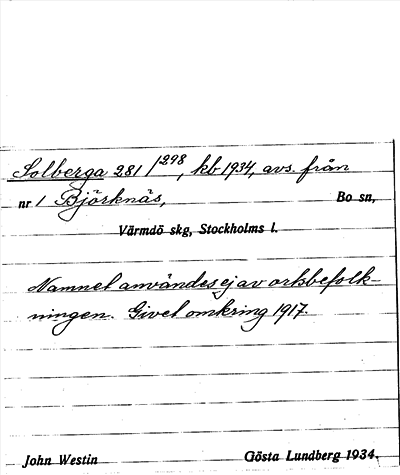 Solberga 281/298, kb 1934, avs. från
nr 1 Björknäs, Bo sn,
Värmdö skg, Stockholms l.
Namnet användes ej av ortsbefolk-
ningen. Givet omkring 1917.
John Westin Gösta Lundberg 1934.